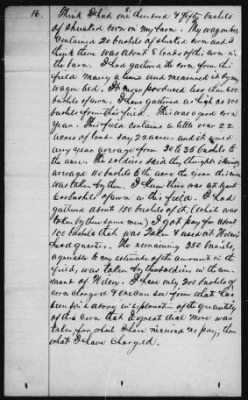 16. Think I had one hundred & fifty bushels
of shucked corn in my barn. My wagon bed
contained 20 bushels of shucked corn and I
think there was about 8 loads of this corn in
the barn. I had gathered the corn from this
field many times and measured it by my
wagon bed. It never produced less than 600
bushels of corn. I have gathered as high as 800
bushels from this field. This was a good corn
year. This field contains a little over 22
acres of land say 22 acres and it would
any year average from 30 to 35 bushels to
the acre. The soldiers said they thought it would
average 40 bushels to the acre the year this corn
was taken by them. I know there was at least
bushels of corn in this field. I had
gathered about 150 bushels of it (which was
taken by these same men) I got pay for about
100 bushels that was taken & used at
head quarters. The remaining 350 bushels,
agreeable to my estimate of the amount in the
field, was taken by the soldiers in the com-
mand of Wilson. I have only 300 bushels of
corn charged & one can see from what has
been said above in support of the quantity
of this corn that a great deal more was
taken for which I have received no pay, than
what I have charged.